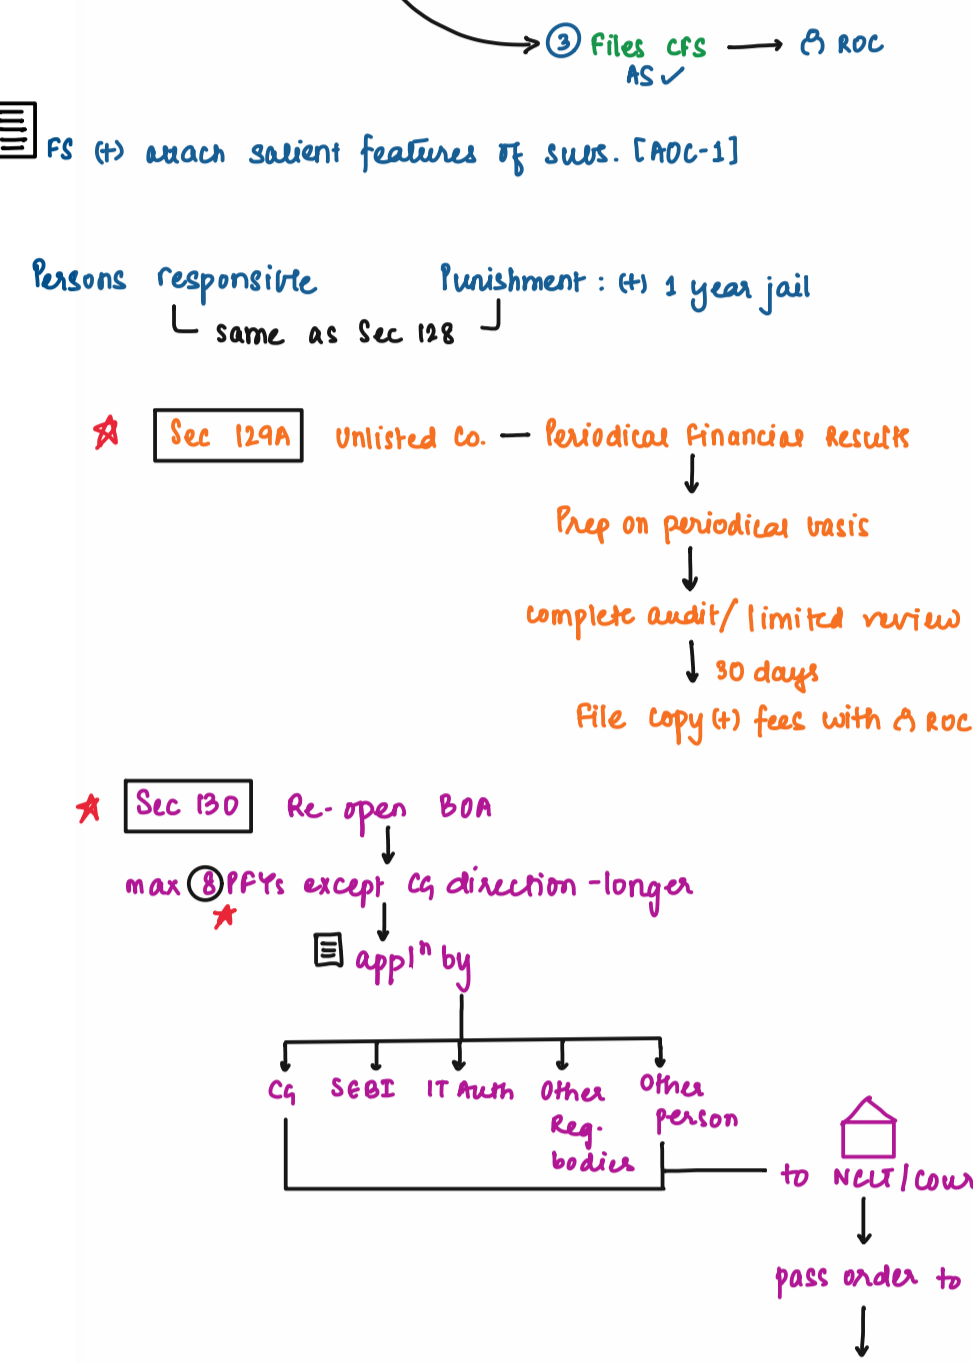 ③ Files CFS → ROC
AS ✓
FS (+) attach salient features of subs. [AOC-1]
Persons responsible Punishment : (+) 1 year jail
same as Sec 128
Sec 129A Unlisted Co. — Periodical Financial Results
Prep on periodical basis
complete audit/limited review
30 days
File copy (+) fees with ROC
Sec 130 Re-open BOA
max 8 PFYs except CG direction - longer
applⁿ by
CG SEBI IT Auth Other Other
person
Reg.
bodies
to NCLT/Cour
pass order to